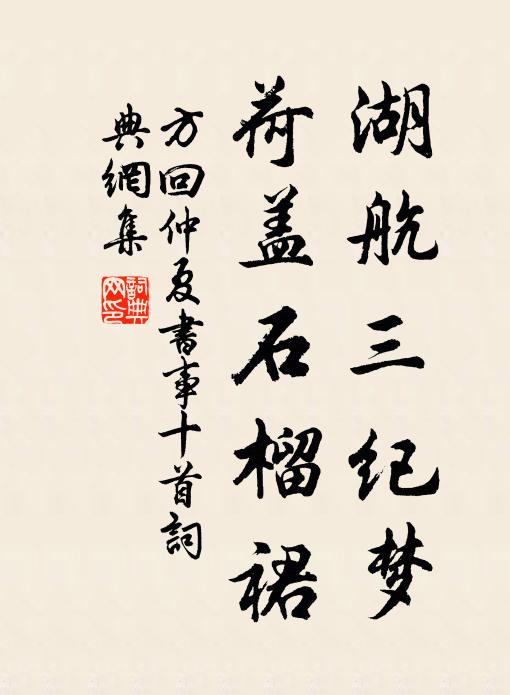 湖航三纪梦
荷盖石榴裙
方回仲夏书事十首詞
典網集
詞典网印